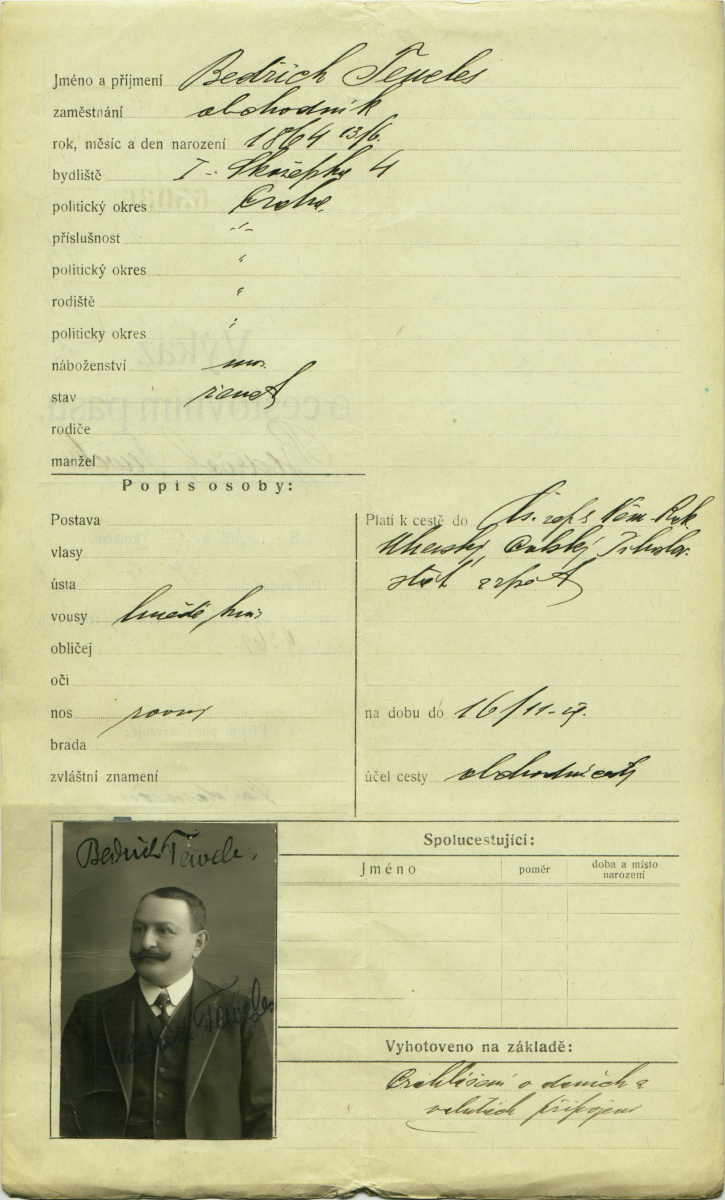 Jméno a příjmení Bedřich Teweles
zaměstnání obchodník
rok, měsíc a den narození 1864 13/6.
bydliště I - Skořepka 4
politický okres Praha.
příslušnost -"-
politický okres "
rodiště "
politicky okres "
náboženství mos.
stav ženat
rodiče
manžel
Popis osoby:
Postava
vlasy
ústa
vousy hnědé knír
obličej
oči
nos rovný
brada
zvláštní znamení
Platí k cestě do Čs. rep. Něm. Rak.
Uherský, Polský,
stát zpět
na dobu do 16/11-
účel cesty obchodní cesty
Bedřich Teweles
Teweles
Spolucestující:
Jméno poměr doba a místo narození
Vyhotoveno na základě:
Přihlášení o daních a
valutách připojeno